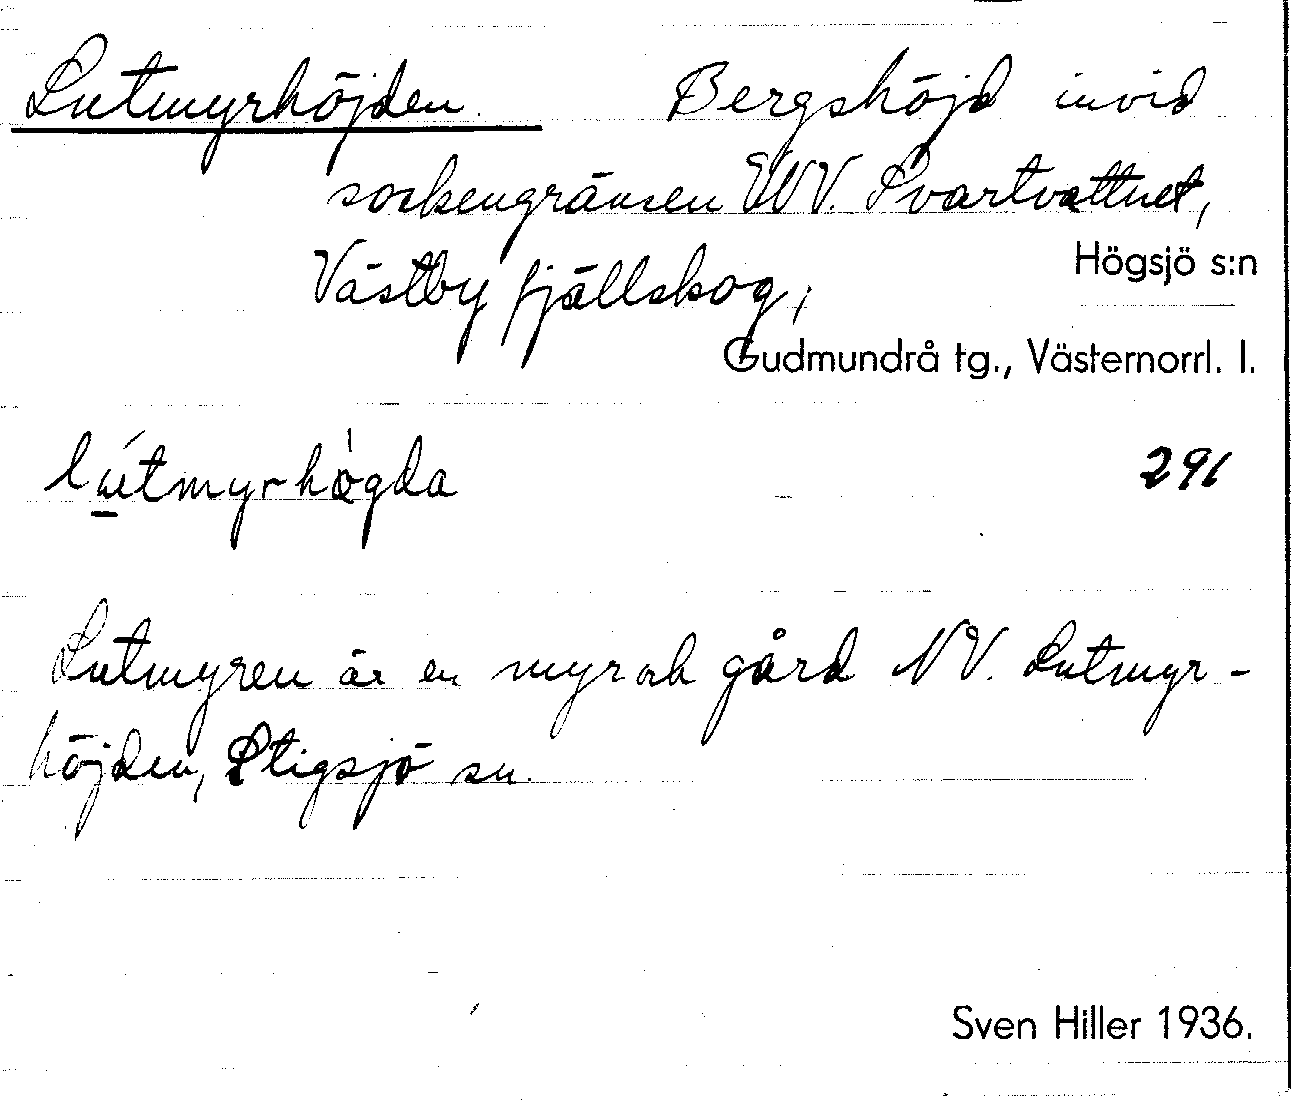 Lutmyrhöjden. Bergshöjd invid
sockengränsen VNV. Svartvattnet,
Västby fjällskog,
Högsjö s:n
Gudmundrå tg., Västernorrl. l.
lutmyrhøgda 291
Lutmyren är en myr och gård NV. Lutmyr-
höjden, Stigsjö sn.
Sven Hiller 1936.